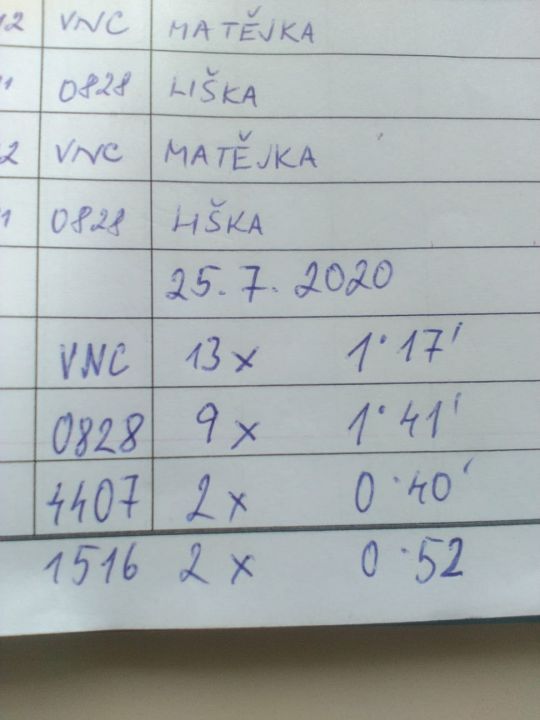 12 VNC MATĚJKA
11 0828 LIŠKA
12 VNC MATĚJKA
11 0828 LIŠKA
25.7.2020
VNC 13x 1·17'
0828 9x 1·41'
4407 2x 0·40'
1516 2x 0·52